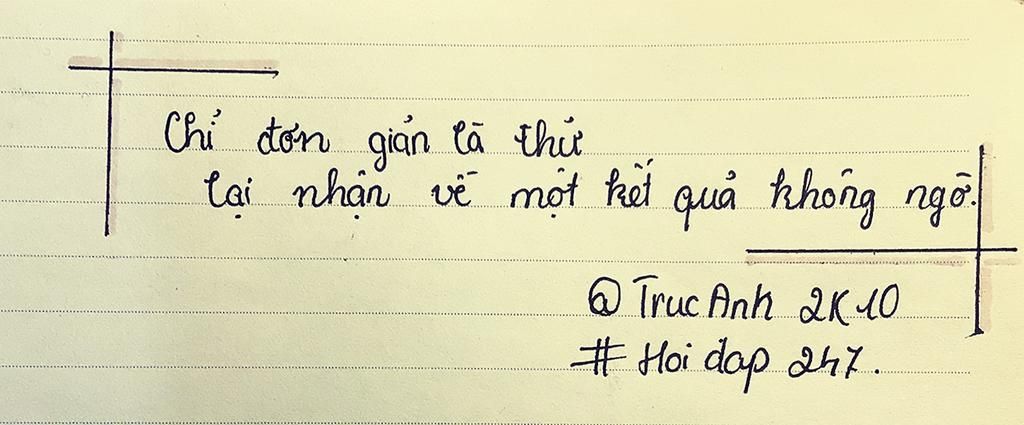 Chỉ đơn giản là thử
lại nhận về một kết quả không ngờ.
@ Truc Anh 2K10
# Hoi dap 247.